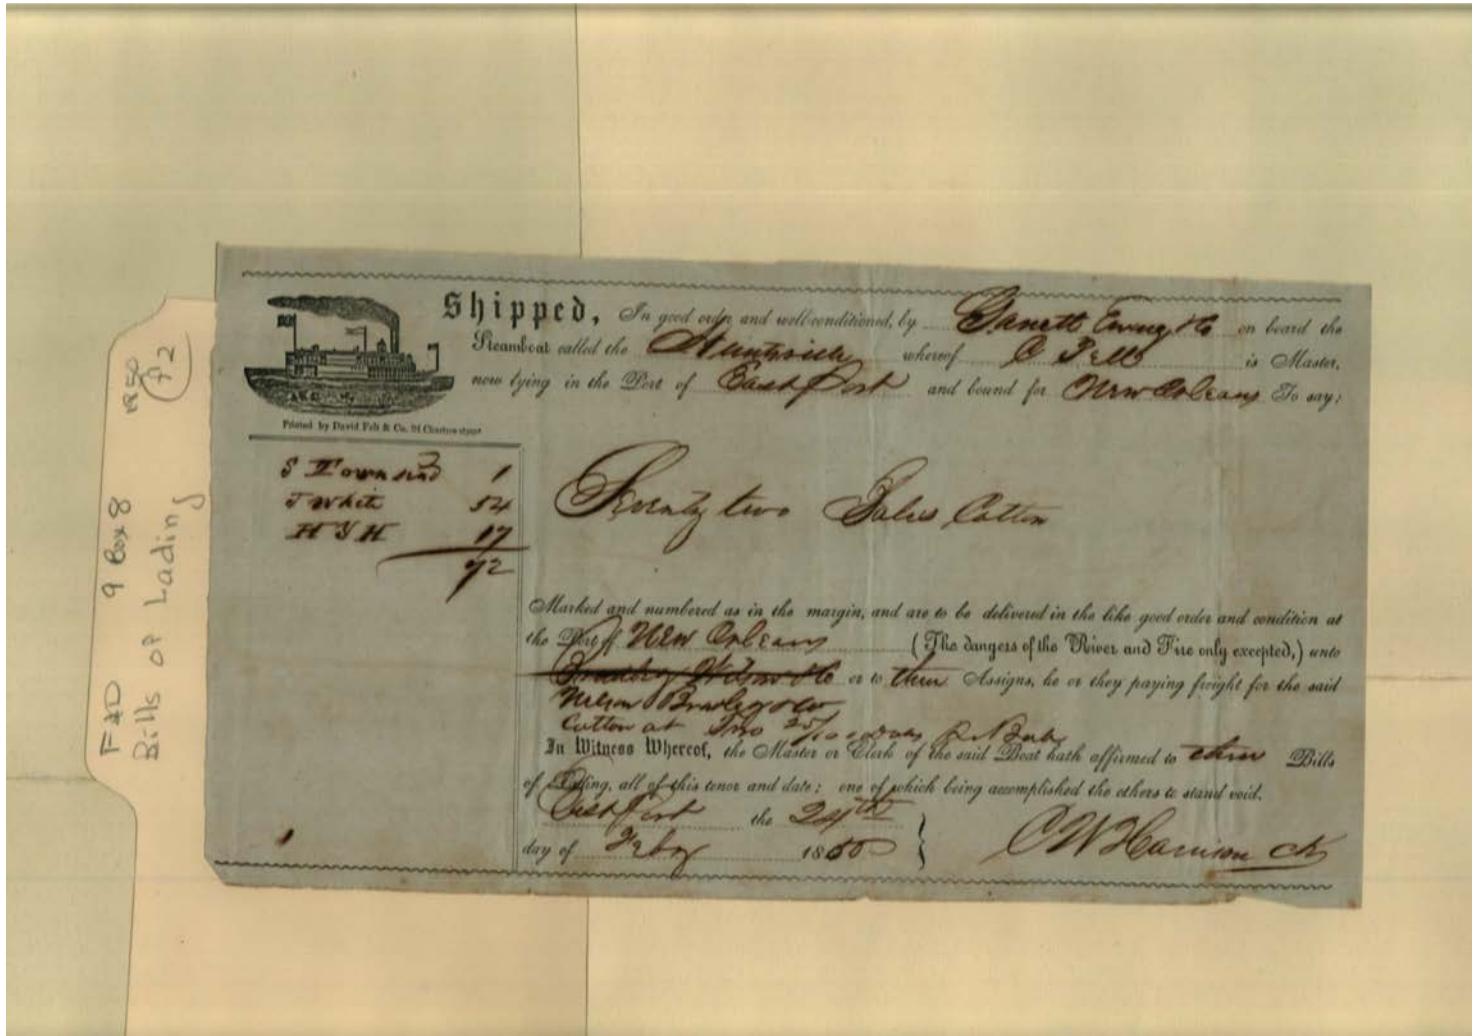 F&D 9 Box 8 1850
f12
Bills of Lading
Shipped, In good order and well-conditioned, by Garrett Ewing & Co on board the
Steamboat called the Huntsville whereof C Pell is Master,
now lying in the Port of East Port and bound for New Orleans To say:
Printed by David Felt & Co.
S Townsend 1
J White 54
H Y H 17
72
Seventy two Bales Cotton
Marked and numbered as in the margin, and are to be delivered in the like good order and condition at
the Port of New Orleans (The dangers of the River and Fire only excepted,) unto
Bradley Wilson & Co or to their Assigns, he or they paying freight for the said
Bradley & Co
Cotton at Two 25/100 Bale
In Witness Whereof, the Master or Clerk of the said Boat hath affirmed to three Bills
of Lading, all of this tenor and date; one of which being accomplished the others to stand void.
East Port the 24th
day of Feby 1850
C W Harrison Ck